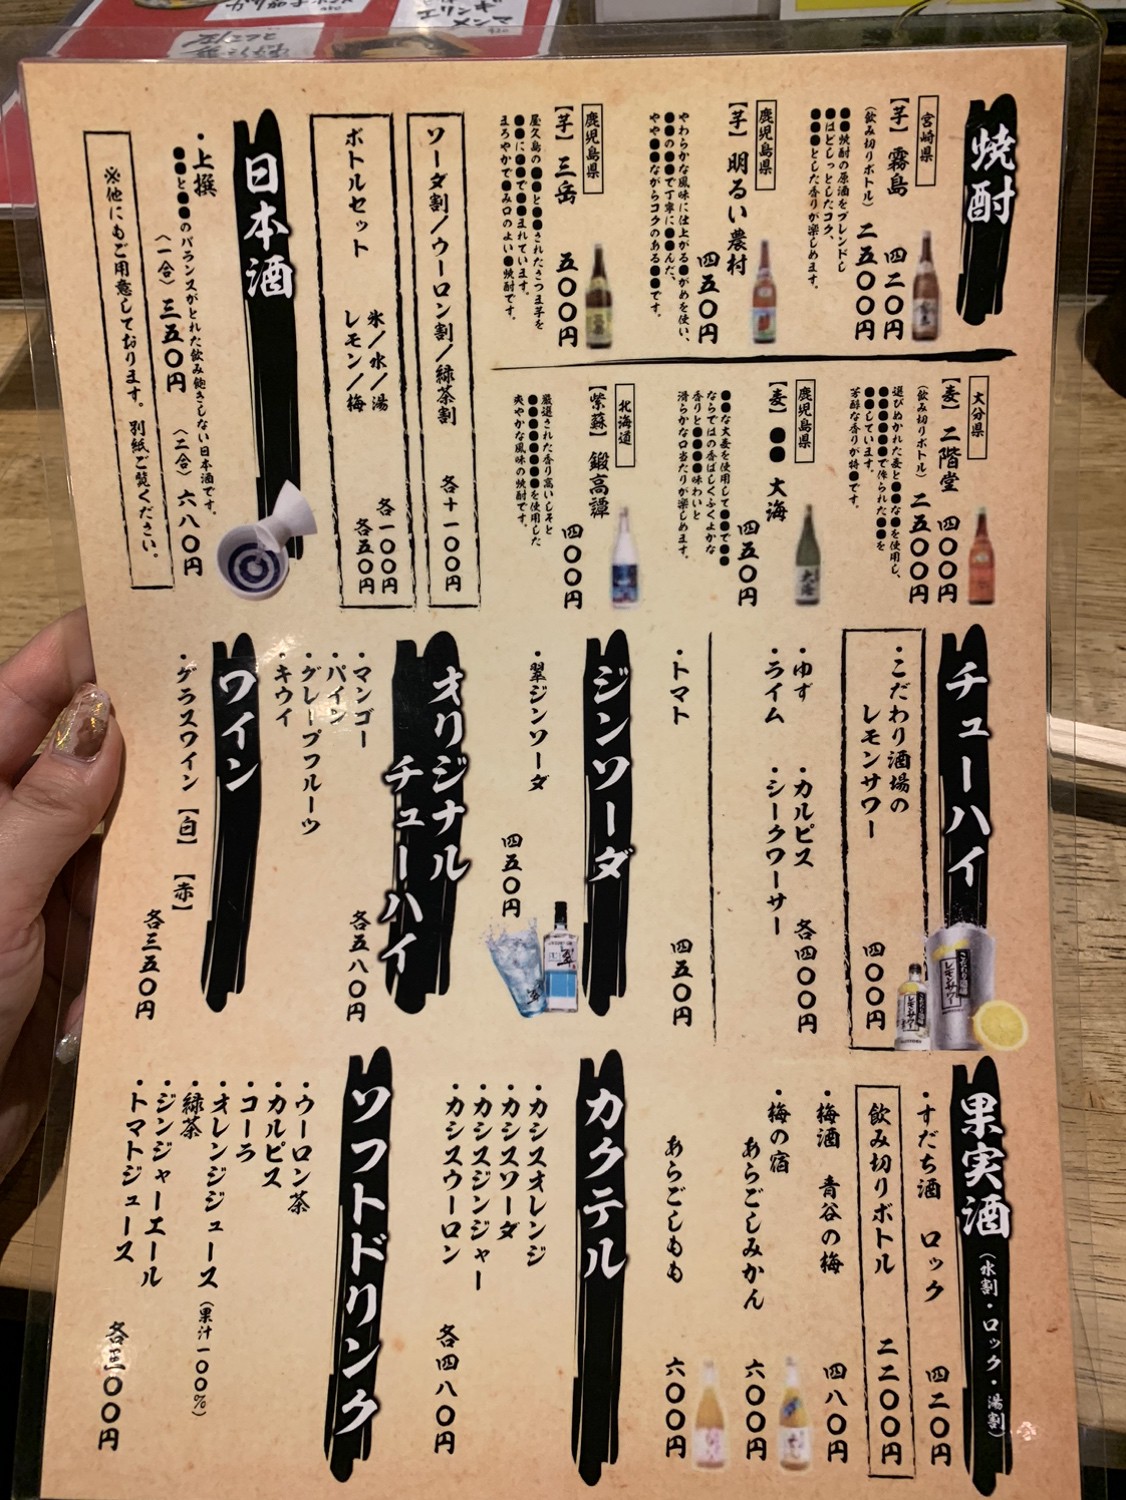 焼酎
宮崎県
【芋】霧島 四二〇円
(飲み切りボトル) 二五〇〇円
●●焼酎の原酒をブレンドし
●はどしっとしたコク、
●●●とした香りが楽しめます。
鹿児島県
【芋】明るい農村
四五〇円
やわらかな風味に仕上がる●がめを使い、
●●●の●●で丁寧に●●んだ、
やや●●ながらコクのある●●です。
鹿児島県
【芋】三岳 五〇〇円
屋久島の●●と●されたさつま芋を
●●に●●で●●まれています。
まろやかで●み口のよい●焼酎です。
大分県
【麦】二階堂 四〇〇円
(飲み切りボトル) 二五〇〇円
選びぬかれた麦と●●な●を使用し、
●●●●●●で作られた●●を
●●しています。
芳醇な香りが特●です。
鹿児島県
【麦】●● 大海
四五〇円
●●な大麦を使用して●●で●●
ならではの香ばしくふくよかな
香りと●●●●味わいと
滑らかな口当たりが楽しめます。
北海道
【紫蘇】鍛高譚
四〇〇円
厳選された香り高いしそと
●●●●●●●●を使用した
爽やかな風味の焼酎です。
ソーダ割/ウーロン割/緑茶割 各十一〇〇円
ボトルセット
氷/水/湯 各一〇〇円
レモン/梅 各五〇円
日本酒
・上撰
●●と●●のバランスがとれた飲み飽きしない日本酒です。
〈一合〉三五〇円 〈二合〉六八〇円
※他にもご用意しております。別紙ご覧ください。
チューハイ
・こだわり酒場の
レモンサワー 四〇〇円
・ゆず ・カルピス 各四〇〇円
・ライム ・シークワーサー
・トマト 四五〇円
ジンソーダ
・翠ジンソーダ
四五〇円
オリジナル
チューハイ
・マンゴー
・パイン
・グレープフルーツ
・キウイ
各五八〇円
ワイン
・グラスワイン【白】【赤】
各三五〇円
果実酒(水割・ロック・湯割)
・すだち酒 ロック 四二〇円
飲み切りボトル 二二〇〇円
・梅酒 青谷の梅 四八〇円
・梅の宿
あらごしみかん 六〇〇円
あらごしもも 六〇〇円
カクテル
・カシスオレンジ
・カシスソーダ
・カシスジンジャー
・カシスウーロン
各四八〇円
ソフトドリンク
・ウーロン茶
・カルピス
・コーラ
・オレンジジュース(果汁一〇〇%)
・緑茶
・ジンジャーエール
・トマトジュース
各三〇〇円